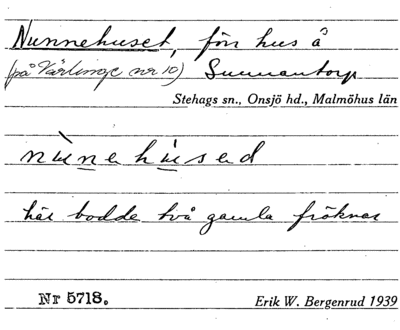 Nunnehuset, förr hus å
(på Värlinge nr 10) Sunnantorp
Stehags sn., Onsjö hd., Malmöhus län
nùnehúsəd
här bodde två gamla fröknar
Nr 5718. Erik W. Bergenrud 1939